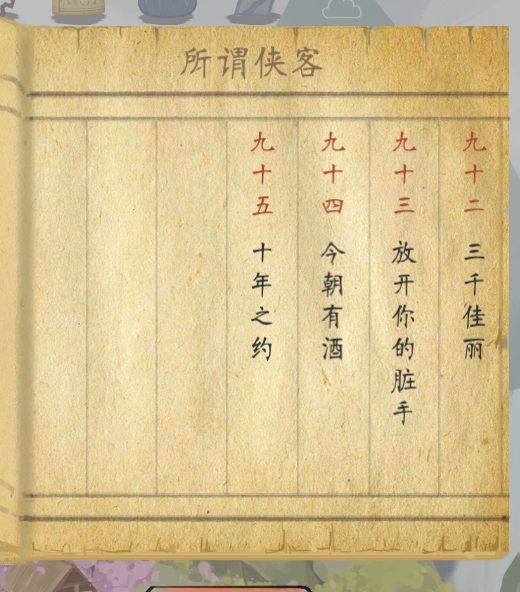 所谓侠客
九十二 三千佳丽
九十三 放开你的脏手
九十四 今朝有酒
九十五 十年之约